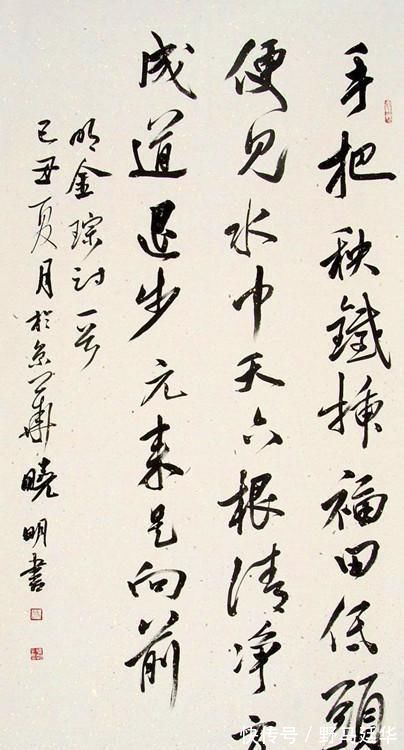 手把秧鐵插福田低頭
便見水中天六根清净
成道退步元來是向前
明金琮詩一首
己丑夏月於京華曉明書
快传号/野马廷华